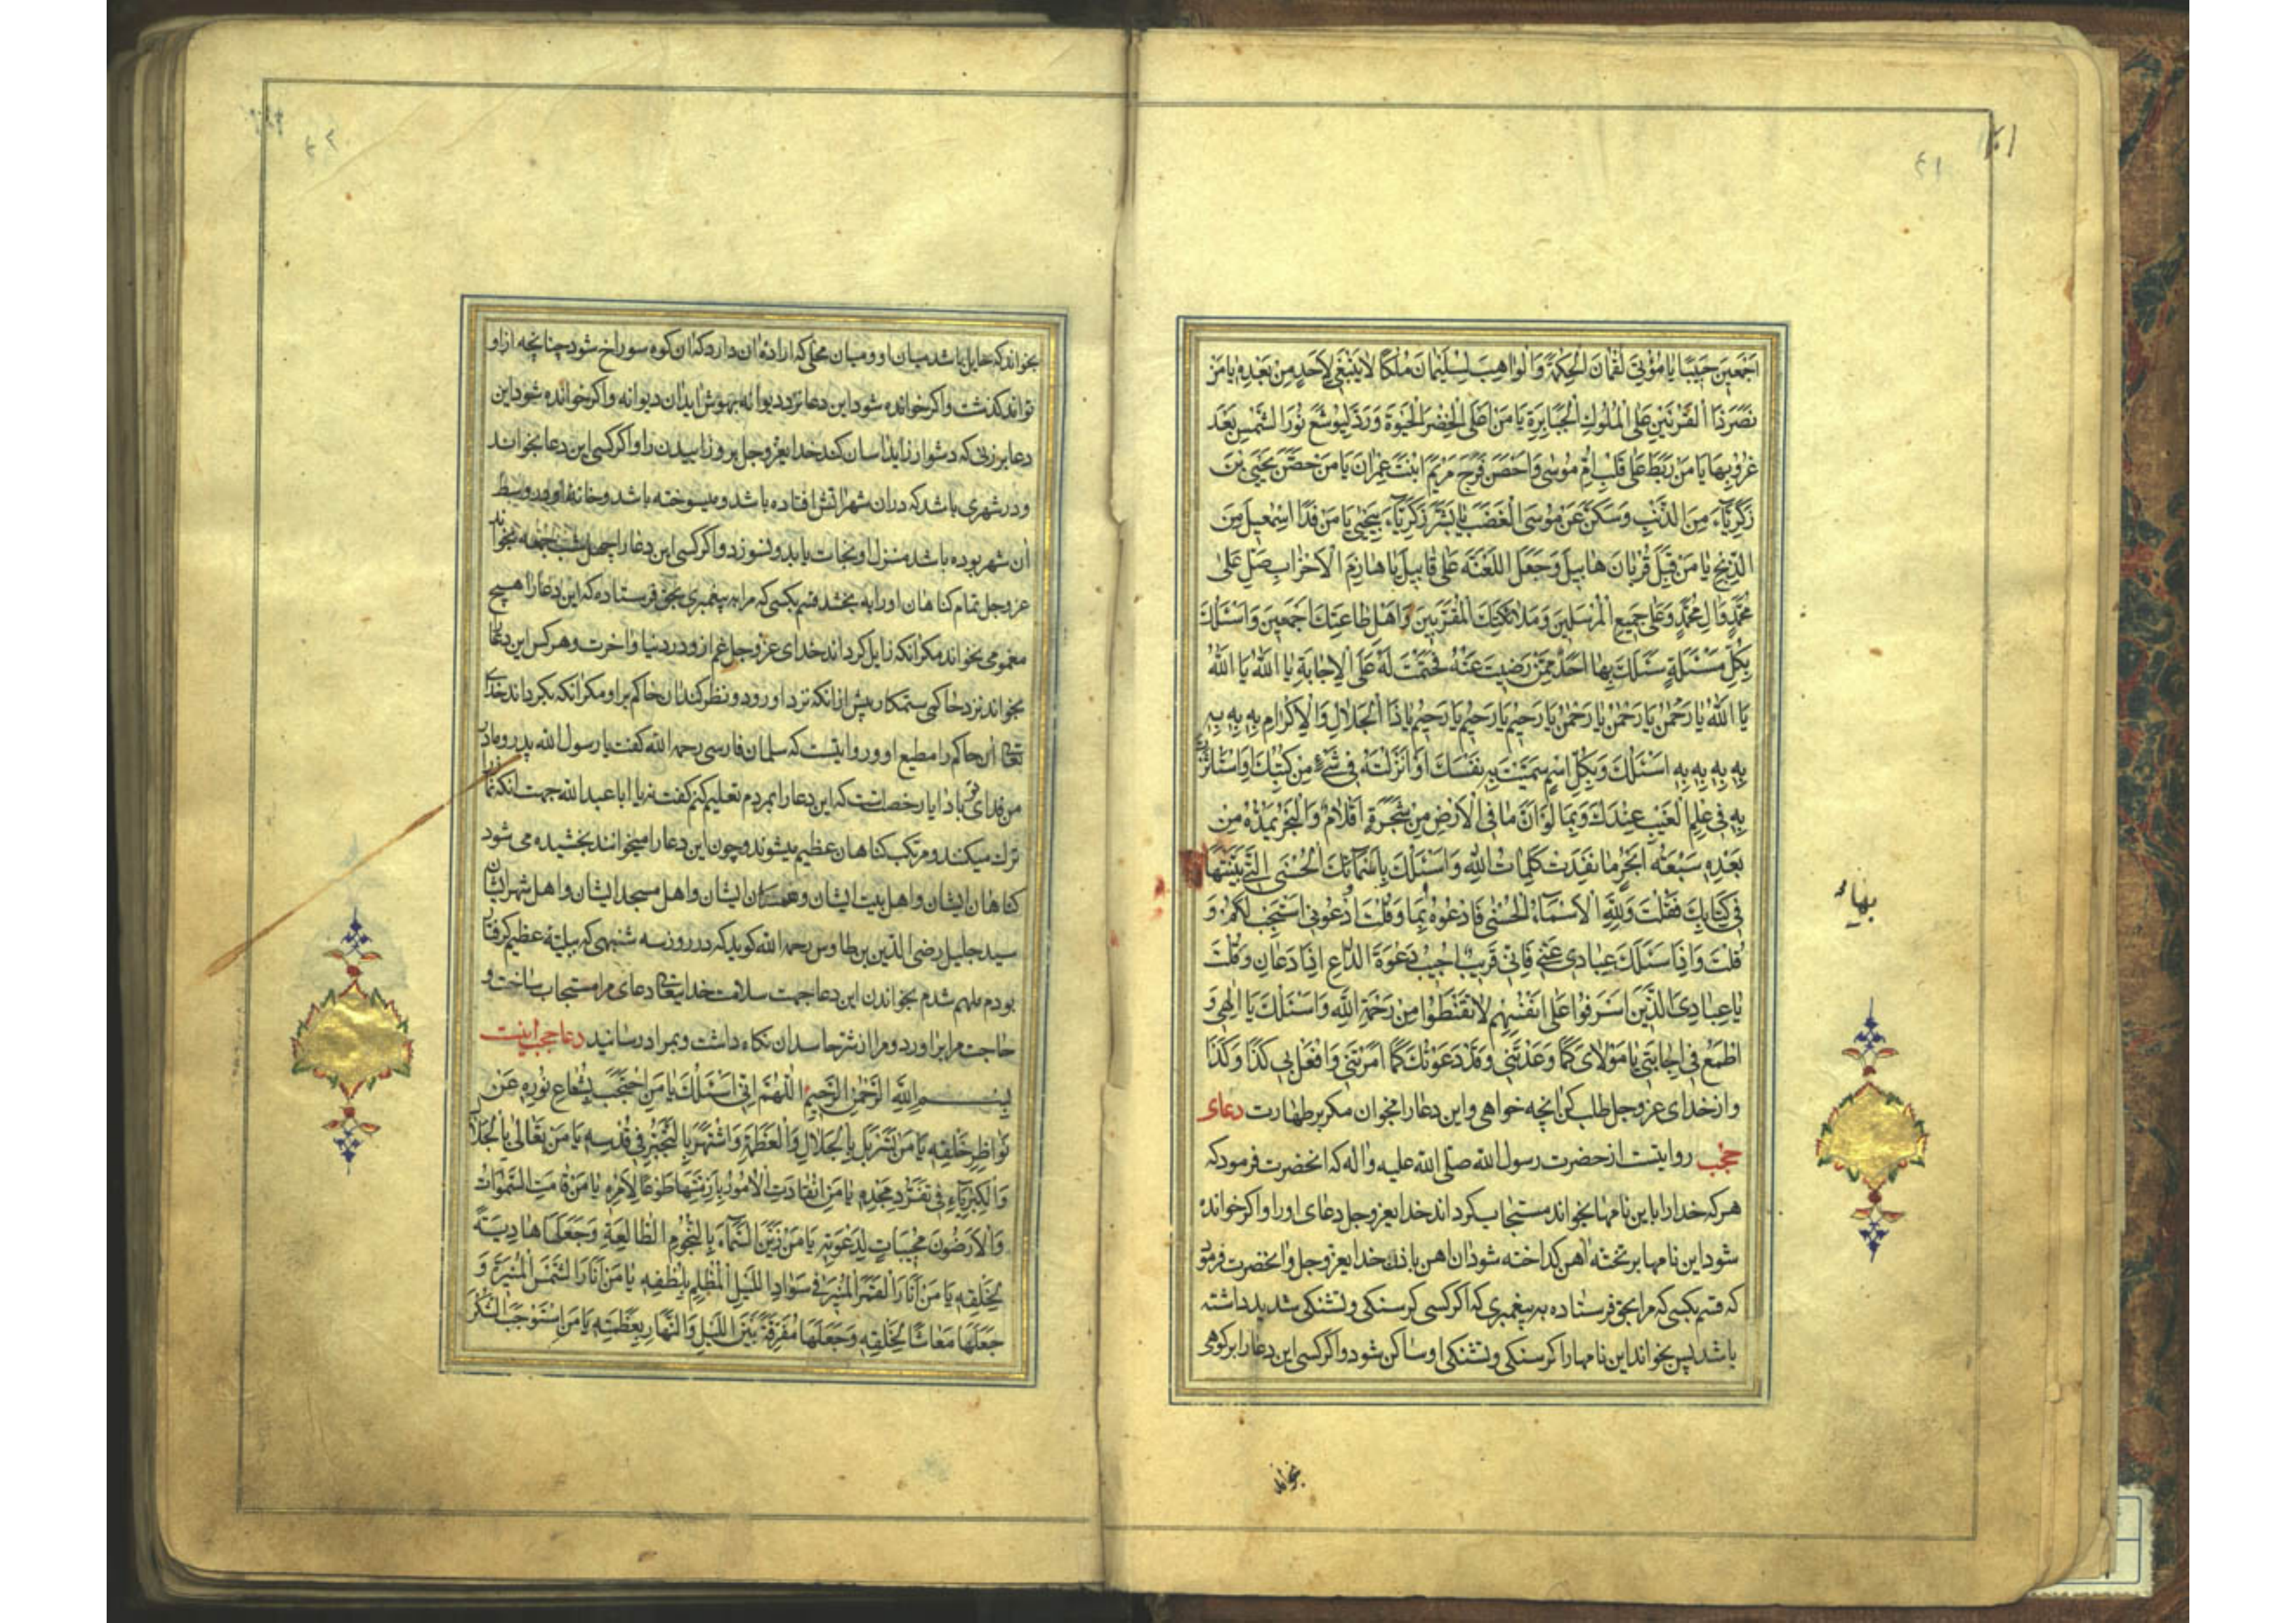 اَجْمَعِينَ حَبِيبًا يَا مُؤْتِيَ لُقْمَانَ الْحِكْمَةَ وَالْوَاهِبَ لِسُلَيْمَانَ مُلْكًا لَا يَنْبَغِي لِأَحَدٍ مِنْ بَعْدِهِ يَا مَنْ
نَصَرَ ذَا الْقَرْنَيْنِ عَلَى الْمُلُوكِ الْجَبَابِرَةِ يَا مَنْ اَعْطَى الْخِضْرَ الْحَيٰوةَ وَرَدَّ لِيُوشَعَ نُورَ الشَّمْسِ بَعْدَ
غُرُوبِهَا يَا مَنْ رَبَطَ عَلَى قَلْبِ اُمِّ مُوسٰى وَاَحْصَنَ فَرْجَ مَرْيَمَ ابْنَتِ عِمْرَانَ يَا مَنْ حَصَّنَ يَحْيَى بْنَ
زَكَرِيَّاءَ مِنَ الذَّنْبِ وَسَكَّنَ عَنْ مُوسَى الْغَضَبَ يَا مَنْ بَشَّرَ زَكَرِيَّاءَ بِيَحْيٰى يَا مَنْ فَدَا اِسْمٰعِيلَ مِنَ
الذَّبْحِ يَا مَنْ قَبِلَ قُرْبَانَ هَابِيلَ وَجَعَلَ اللَّعْنَةَ عَلَى قَابِيلَ يَا هَازِمَ الْاَحْزَابِ صَلِّ عَلٰى
مُحَمَّدٍ وَاٰلِ مُحَمَّدٍ وَعَلٰى جَمِيعِ الْمُرْسَلِينَ وَمَلَائِكَتِكَ الْمُقَرَّبِينَ وَاَهْلِ طَاعَتِكَ اَجْمَعِينَ وَاَسْئَلُكَ
بِكُلِّ مَسْئَلَةٍ سَئَلَكَ بِهَا اَحَدٌ مِمَّنْ رَضِيتَ عَنْهُ فَحَتَمْتَ لَهُ عَلَى الْاِجَابَةِ يَا اَللّٰهُ يَا اَللّٰهُ
يَا اَللّٰهُ يَا رَحْمٰنُ يَا رَحْمٰنُ يَا رَحْمٰنُ يَا رَحِيمُ يَا رَحِيمُ يَا رَحِيمُ يَا ذَا الْجَلَالِ وَالْاِكْرَامِ بِهِ بِهِ بِهِ
بِهِ بِهِ بِهِ بِهِ اَسْئَلُكَ وَبِكُلِّ اسْمٍ سَمَّيْتَ بِهِ نَفْسَكَ اَوْ اَنْزَلْتَهُ فِي شَيْءٍ مِنْ كُتُبِكَ وَاسْتَأْثَرْتَ
بِهِ فِي عِلْمِ الْغَيْبِ عِنْدَكَ وَبِمَا لَوْ اَنَّ مَا فِي الْاَرْضِ مِنْ شَجَرَةٍ اَقْلَامٌ وَالْبَحْرُ يَمُدُّهُ مِنْ
بَعْدِهِ سَبْعَةُ اَبْحُرٍ مَا نَفِدَتْ كَلِمَاتُ اللّٰهِ وَاَسْئَلُكَ بِاَسْمَائِكَ الْحُسْنَى الَّتِي بَيَّنْتَهَا
فِي كِتَابِكَ فَقُلْتَ وَلِلّٰهِ الْاَسْمَاءُ الْحُسْنٰى فَادْعُوهُ بِهَا وَقُلْتَ اُدْعُونِي اَسْتَجِبْ لَكُمْ وَ
قُلْتَ وَاِذَا سَئَلَكَ عِبَادِي عَنِّي فَاِنِّي قَرِيبٌ اُجِيبُ دَعْوَةَ الدَّاعِ اِذَا دَعَانِ وَقُلْتَ
يَا عِبَادِيَ الَّذِينَ اَسْرَفُوا عَلَى اَنْفُسِهِمْ لَا تَقْنَطُوا مِنْ رَحْمَةِ اللّٰهِ وَاَسْئَلُكَ يَا اِلٰهِي وَ
اَطْمَعُ فِي اِجَابَتِي يَا مَوْلَايَ كَمَا وَعَدْتَنِي وَقَدْ دَعَوْتُكَ كَمَا اَمَرْتَنِي وَافْعَلْ بِي كَذَا وَكَذَا
و از خدای عز و جل طلب کن انچه خواهی و این دعا را مخوان مکر بر طهارت دعای
حجب روایتست از حضرت رسول الله صلی الله علیه و اله که انحضرت فرمود که
هر که خدا را باین نامها بخواند مستجاب کرداند خدایعز و جل دعای او را و اکر خوانده
شود این نامها بر تخته اهن کداخته شود ان اهن باذن خدایعز و جل و انحضرت فرمود
که قسم بکسی که مرا بحق فرستاده به پیغمبری که اکر کسی کرسنکی و تشنکی شدید داشته
باشد پس بخواند این نامها را کرسنکی و تشنکی او ساکن شود و اکر کسی این دعا را بر کوهی
بهاء
بخواند
۴۱
بخواند که حایل باشد میان او و میان محلی که اراده ان دارد که ان کوه سوراخ شود چنانچه از او
تواند کذشت و اکر خوانده شود این دعا نزد دیوانه بهوش اید ان دیوانه و اکر خوانده شود این
دعا بر زنی که دشوار زاید اسان کند خدایعز و جل بر و زاییدن را و اکر کسی این دعا بخواند
و در شهری باشد که در ان شهر اتش افتاده باشد و میسوخته باشد و خانه او در وسط
ان شهر بوده باشد منزل او نجات یابد و نسوزد و اکر کسی این دعا را چهل شب جمعه بخواند
عز و جل تمام کناهان او را بیامرزد قسم بکسی که مرا به پیغمبری بحق فرستاده که این دعا را هیچ
مغمومی بخواند مکر انکه زایل کرداند خدای عز و جل غم از و در دنیا و اخرت و هر کس این دعا را
بخواند نزد حاکمی ستمکار پیش از انکه نزد او رود و نظر کند ان حاکم بر او مکر انکه بکرداند خدای
تعالی ان حاکم را مطیع او و روایتست که سلمان فارسی رحمه الله کفت یا رسول الله پدر و مادر
من فدای تو باد ایا رخصت هست که این دعا را بمردم تعلیم کنم کفت نه یا ابا عبد الله جهت انکه نماز
ترک میکنند و مرتکب کناهان عظیم میشوند و چون این دعا را میخوانند بخشیده می شود
کناهان ایشان و اهل بیت ایشان و همسایکان ایشان و اهل مسجد ایشان و اهل شهر ایشان
سید جلیل رضی الدین بن طاوس رحمه الله کوید که در روز سه شنبهی که ببلیه عظیم کرفتار
بودم ملهم شدم بخواندن این دعا جهت سلامت خدایتعالی دعای مرا مستجاب ساخت و
حاجت مرا بر اورد و مرا از شر حاسدان نکاه داشت و بمراد رسانید دعا حجب اینست
بِسْمِ اللّٰهِ الرَّحْمٰنِ الرَّحِيمِ اَللّٰهُمَّ اِنِّي اَسْئَلُكَ يَا مَنِ احْتَجَبَ بِشُعَاعِ نُورِهِ عَنْ
نَوَاظِرِ خَلْقِهِ يَا مَنْ تَسَرْبَلَ بِالْجَلَالِ وَالْعَظَمَةِ وَاشْتَهَرَ بِالتَّجَبُّرِ فِي قُدْسِهِ يَا مَنْ تَعَالٰى بِالْجَلَالِ
وَالْكِبْرِيَاءِ فِي تَفَرُّدِ مَجْدِهِ يَا مَنِ انْقَادَتِ الْاُمُورُ بِاَزِمَّتِهَا طَوْعًا لِاَمْرِهِ يَا مَنْ قَامَتِ السَّمٰوَاتُ
وَالْاَرَضُونَ مُجِيبَاتٍ لِدَعْوَتِهِ يَا مَنْ زَيَّنَ السَّمَاءَ بِالنُّجُومِ الطَّالِعَةِ وَجَعَلَهَا هَادِيَةً
لِخَلْقِهِ يَا مَنْ اَنَارَ الْقَمَرَ الْمُنِيرَ فِي سَوَادِ اللَّيْلِ الْمُظْلِمِ بِلُطْفِهِ يَا مَنْ اَنَارَ الشَّمْسَ الْمُنِيرَةَ وَ
جَعَلَهَا مَعَاشًا لِخَلْقِهِ وَجَعَلَهَا مُفَرِّقَةً بَيْنَ اللَّيْلِ وَالنَّهَارِ بِعَظَمَتِهِ يَا مَنِ اسْتَوْجَبَ الشُّكْرَ
۴۲